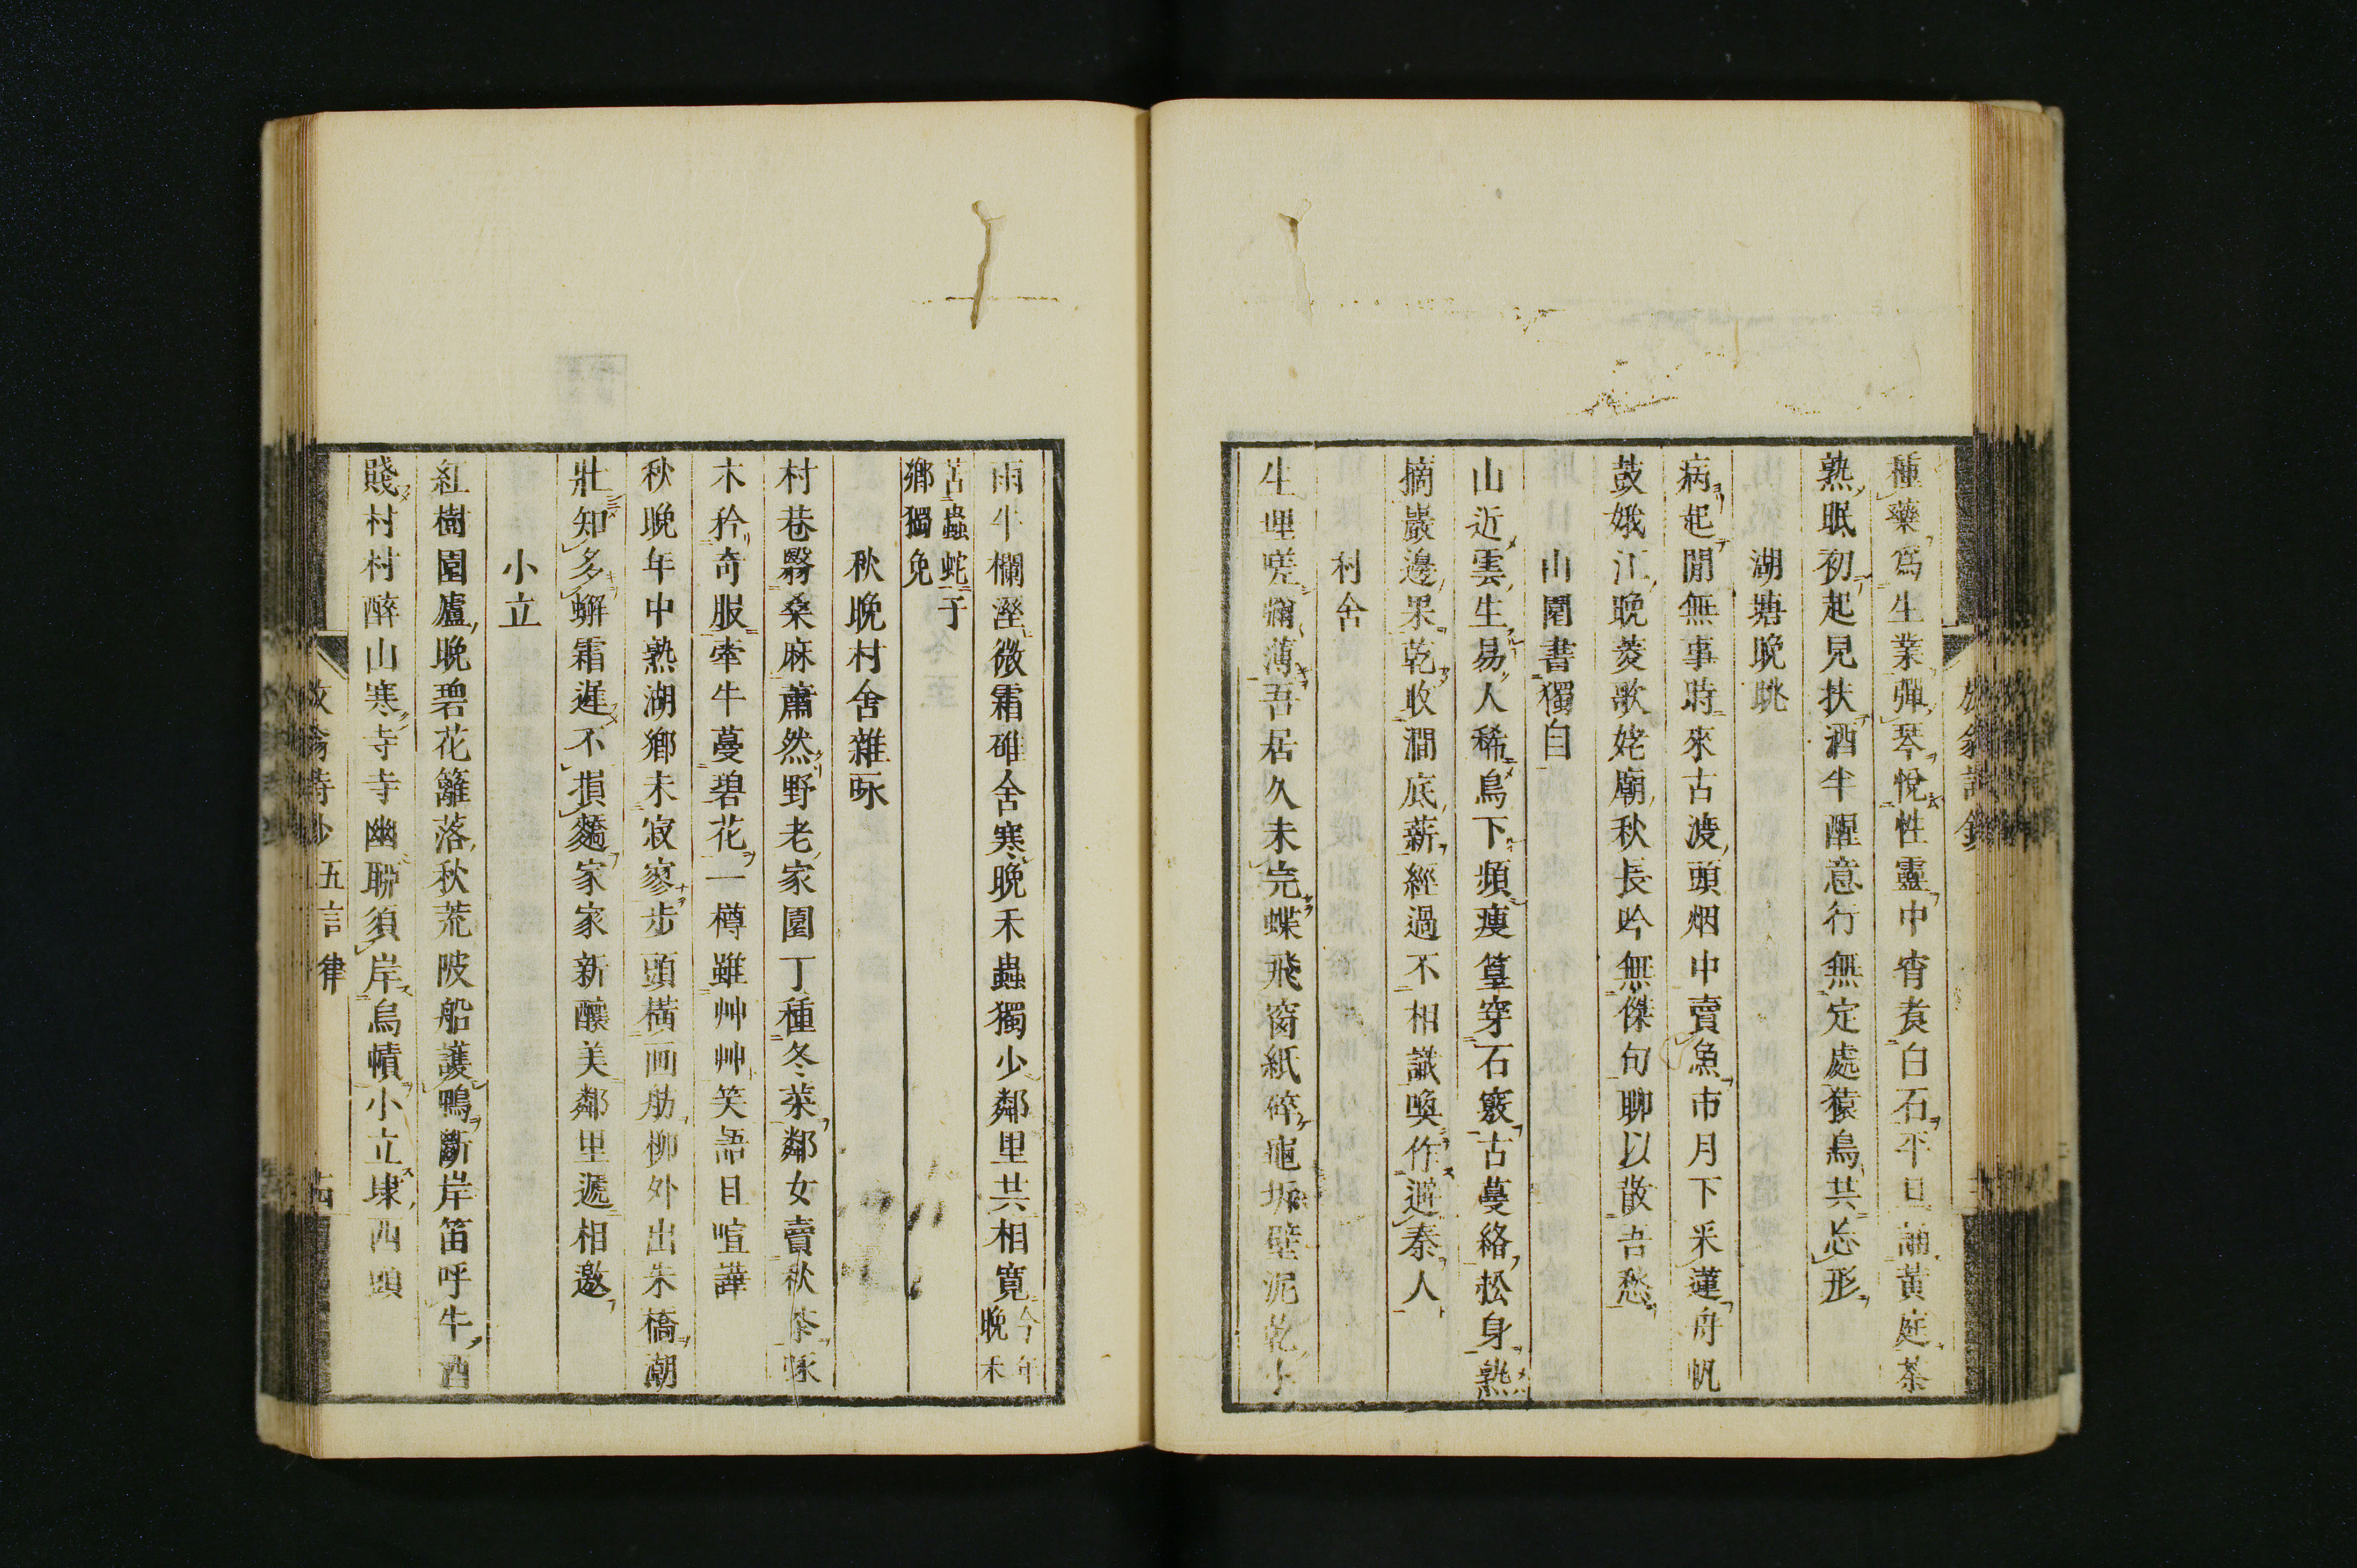 種藥爲生業彈琴悅性靈中宵煑白石平旦誦黃庭茶
熟眠初起見扶酒半醒意行無定處猿鳥共忘形
湖塘晩眺
病起閒無事時來古渡頭烟中賣魚市月下釆蓮舟帆
鼓娥江晩菱歌姥廟秋長吟無傑句聊以散吾愁
山園書獨自
山近雲生易人稀鳥下頻瘦篁穿石竅古蔓絡松身熟
摘巖邊果乾收澗底薪經過不相識喚作避秦人
村舍
生理嗟彌薄吾居久未完蝶飛窗紙碎龜坼壁泥乾小
雨牛欄溼微霜碓舍寒晩禾蟲獨少鄰里共相寬今年晩禾
苦蟲蛇于
鄉獨免
秋晩村舍雜詠
村巷翳桑麻蕭然野老家園丁種冬菜鄰女賣秋茶啄
木矜奇服牽牛蔓碧花一樽雖艸艸笑語日喧譁
秋晩年中熟湖鄉未寂寥步頭橫画舫柳外出朱橋潮
壯知多蠏霜遲不損蕎家家新釀美鄰里遞相邀
小立
紅樹園廬晩碧花籬落秋荒陂船護鴨斷岸笛呼牛酒
賤村村醉山寒寺寺幽聯須岸烏幘小立埭西頭
放翁詩鈔 五言律